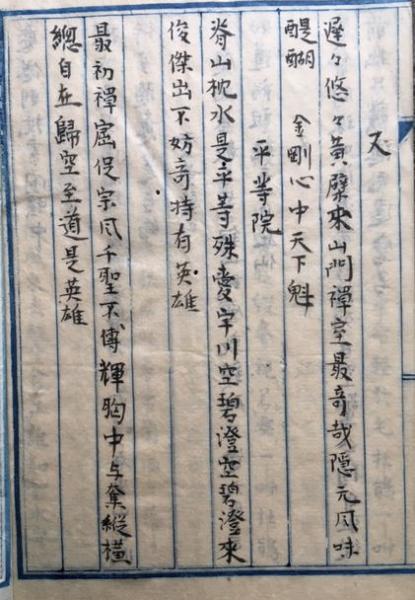 又
遲々悠々黃檗來山門禪室最奇哉隱元风味
醍醐　金剛心中天下魁
平等院
脊山枕水是平等殊愛宇川空碧澄空碧澄來
俊傑出不妨奇特有英雄
最初禪窟促宗风千聖不傳輝胸中与奪縱橫
總自在歸空至道是英雄